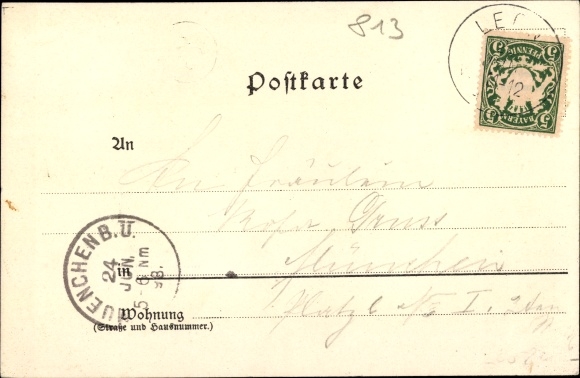 813
LE
PFENNIG
5 5
BAYERN
5 5
12
Postkarte
An
An Fräulein
Rosa
München
MUENCHEN B.U.
24
JUN.
5-6 Nm
98.
in
Platzl No I.
Wohnung
(Straße und Hausnummer.)